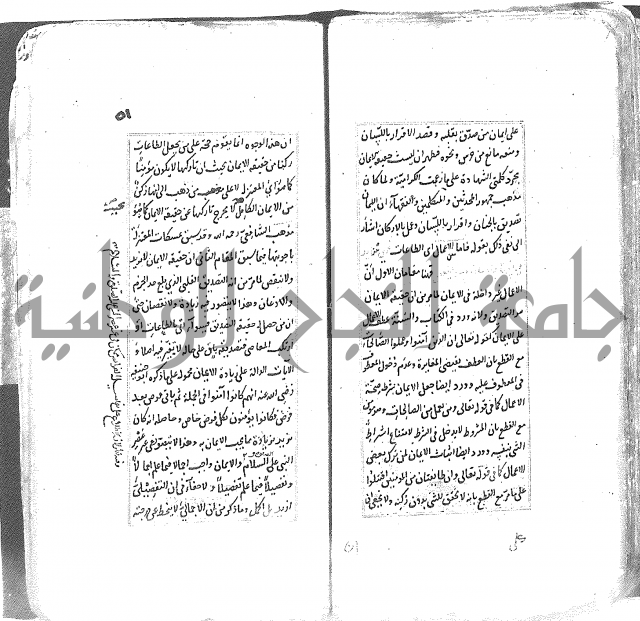 على ايمان من صدق بقلبه وقصد الاقرار باللسان
ومنعه مانع من خرس ونحوه فظهر ان ليست حقيقة الايمان
مجرد كلمتي الشهادة على ما زعمت الكرامية ولما كان
مذهب جمهور المحدثين والمتكلمين والفقهاء ان الايمان
تصديق بالجنان واقرار باللسان وعمل بالاركان اشار
الى نفي ذلك بقوله فاما الاعمال اى الطاعات
فهنا مقامان الاول ان
الاعمال غير داخلة في الايمان لما مر من ان حقيقة الايمان
هو التصديق ولانه ورد في الكتاب والسنة عطف الاعمال
على الايمان كقوله تعالى ان الذين آمنوا وعملوا الصالحات
مع القطع بان العطف يقتضى المغايرة وعدم دخول المعطوف
في المعطوف عليه وورد ايضا جعل الايمان شرط صحة
الاعمال كما في قوله تعالى ومن يعمل من الصالحات وهو مؤمن
مع القطع بان المشروط لا يدخل في الشرط لامتناع اشتراط
الشئ بنفسه وورد ايضا اثبات الايمان لمن ترك بعض
الاعمال كما في قوله تعالى وان طائفتان من المؤمنين اقتتلوا
على ما مر مع القطع بانه لا تحقق للشئ بدون ركنه ولا يخفى ان
على
٥١
ان هذه الوجوه انما تقوم حجة على من يجعل الطاعات
ركنا من حقيقة الايمان بحيث ان تاركها لا يكون مؤمنا
كما هو رأى المعتزلة لا على مذهب من ذهب الى انها ركن
من الايمان الكامل بحيث لا يخرج تاركها عن حقيقة الايمان كما هو
مذهب الشافعي رحمه الله وقد سبق تمسكات المعتزلة
باجوبتها فيما سبق المقام الثاني ان حقيقة الايمان لا تزيد
ولا تنقص لما مر من انه التصديق القلبي الذي بلغ حد الجزم
والاذعان وهذا لا يتصور فيه زيادة ولا نقصان حتى
ان من حصل له حقيقة التصديق فسواء اتى بالطاعات او
ارتكب المعاصي فتصديقه باق على حاله لا تغير فيه اصلا و
الايات الدالة على زيادة الايمان محمولة على ما ذكره ابو حنيفة
رضى الله عنه انهم كانوا آمنوا في الجملة ثم يأتي فرض بعد
فرض فكانوا يؤمنون بكل فرض خاص وحاصله انه كان
يزيد بزيادة ما يجب الايمان به وهذا لا يتصور في غير عصر
النبي عليه السلام والايمان واجب اجمالا فيما علم اجمالا
وتفصيلا فيما علم تفصيلا ولا خفاء في ان التفصيلي
ازيد بل اكمل وما ذكر من ان الاجمالي لا ينحط عن درجته
جامعة النجاح الوطنية